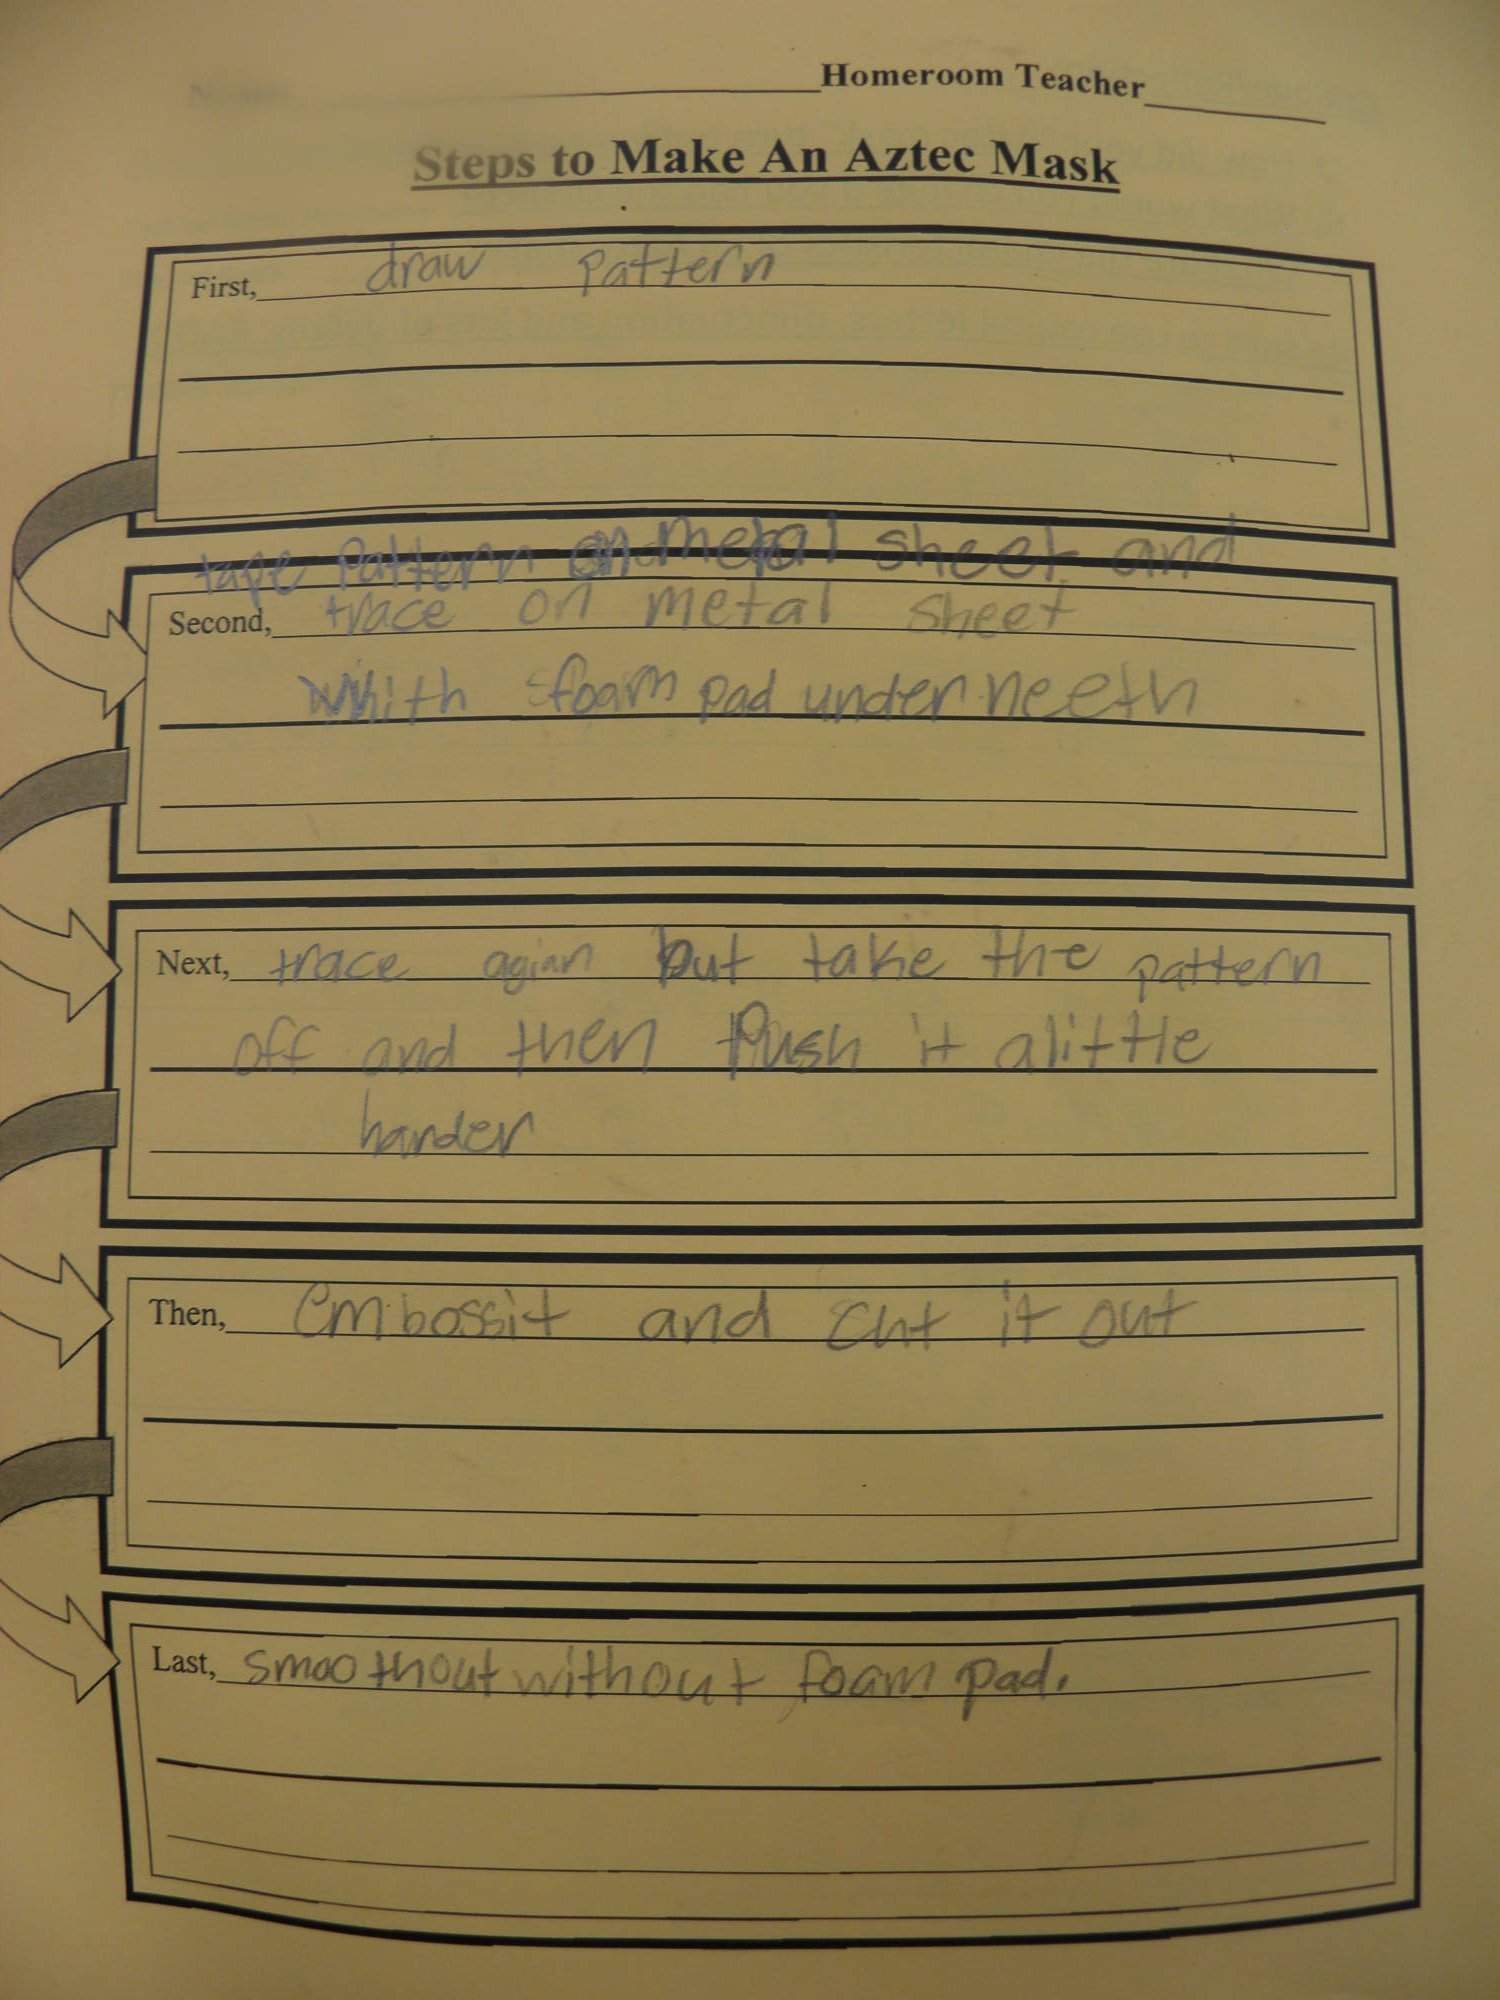 Homeroom Teacher
Steps to Make An Aztec Mask
First, draw pattern
tape Pattern on metal sheet and
Second, trace on metal sheet
whith foam pad underneeth
Next, trace agian but take the pattern
off and then Push it alittle
harder
Then, Embossit and cut it out
Last, smoothout without foam pad.